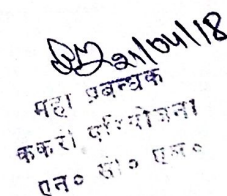 21/04/18
महा प्रबन्धक
ककरी परियोजना
एन० सी० एल०